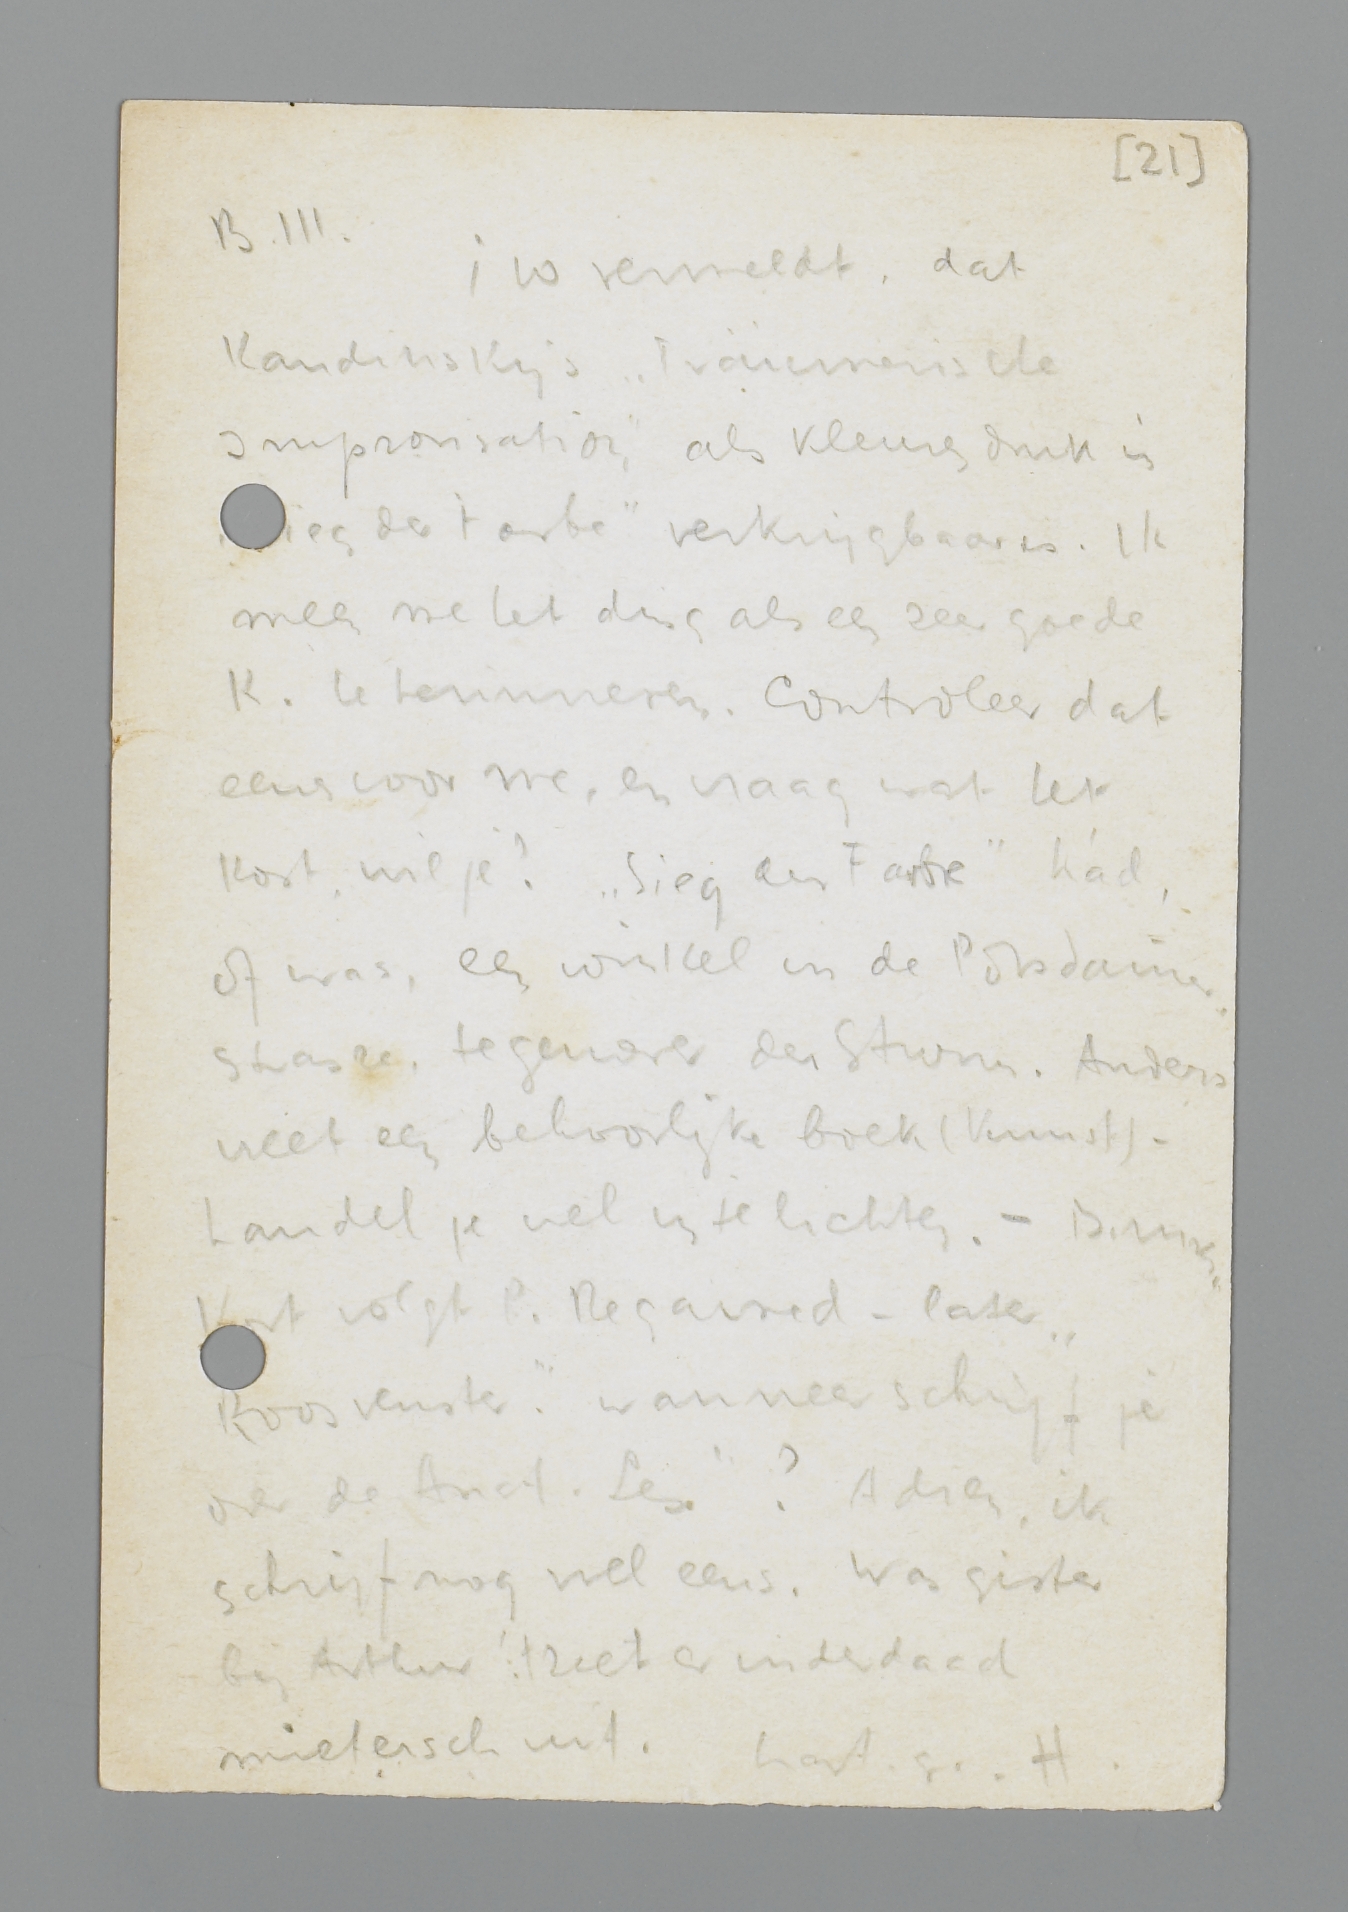 [21]
B.III.
i 10 vermeldt, dat
Kandinsky's „Träumerische
Improvisation" als kleurendruk in
ieg der Farbe" verkrijgbaar is. Ik
meen me het ding als een zeer goede
K. te herinneren. Controleer dat
eens voor me, en vraag wat het
kost, wil je? „Sieg der Farbe" hád,
of was, een winkel in de Potsdamer
strasse, tegenover der Sturm. Anders
weet een behoorlijke boek (Kunst)-
handel je wel in te lichten. - Binnen
Kort volgt P. Regaured - later „
Roosvenster". wanneer schrijf je
over de Anat. Les" ? Adieu, ik
schrijf nog wel eens. Was gister
bij Arthur: 't ziet er inderdaad
mietersch uit. hart. gr. H.